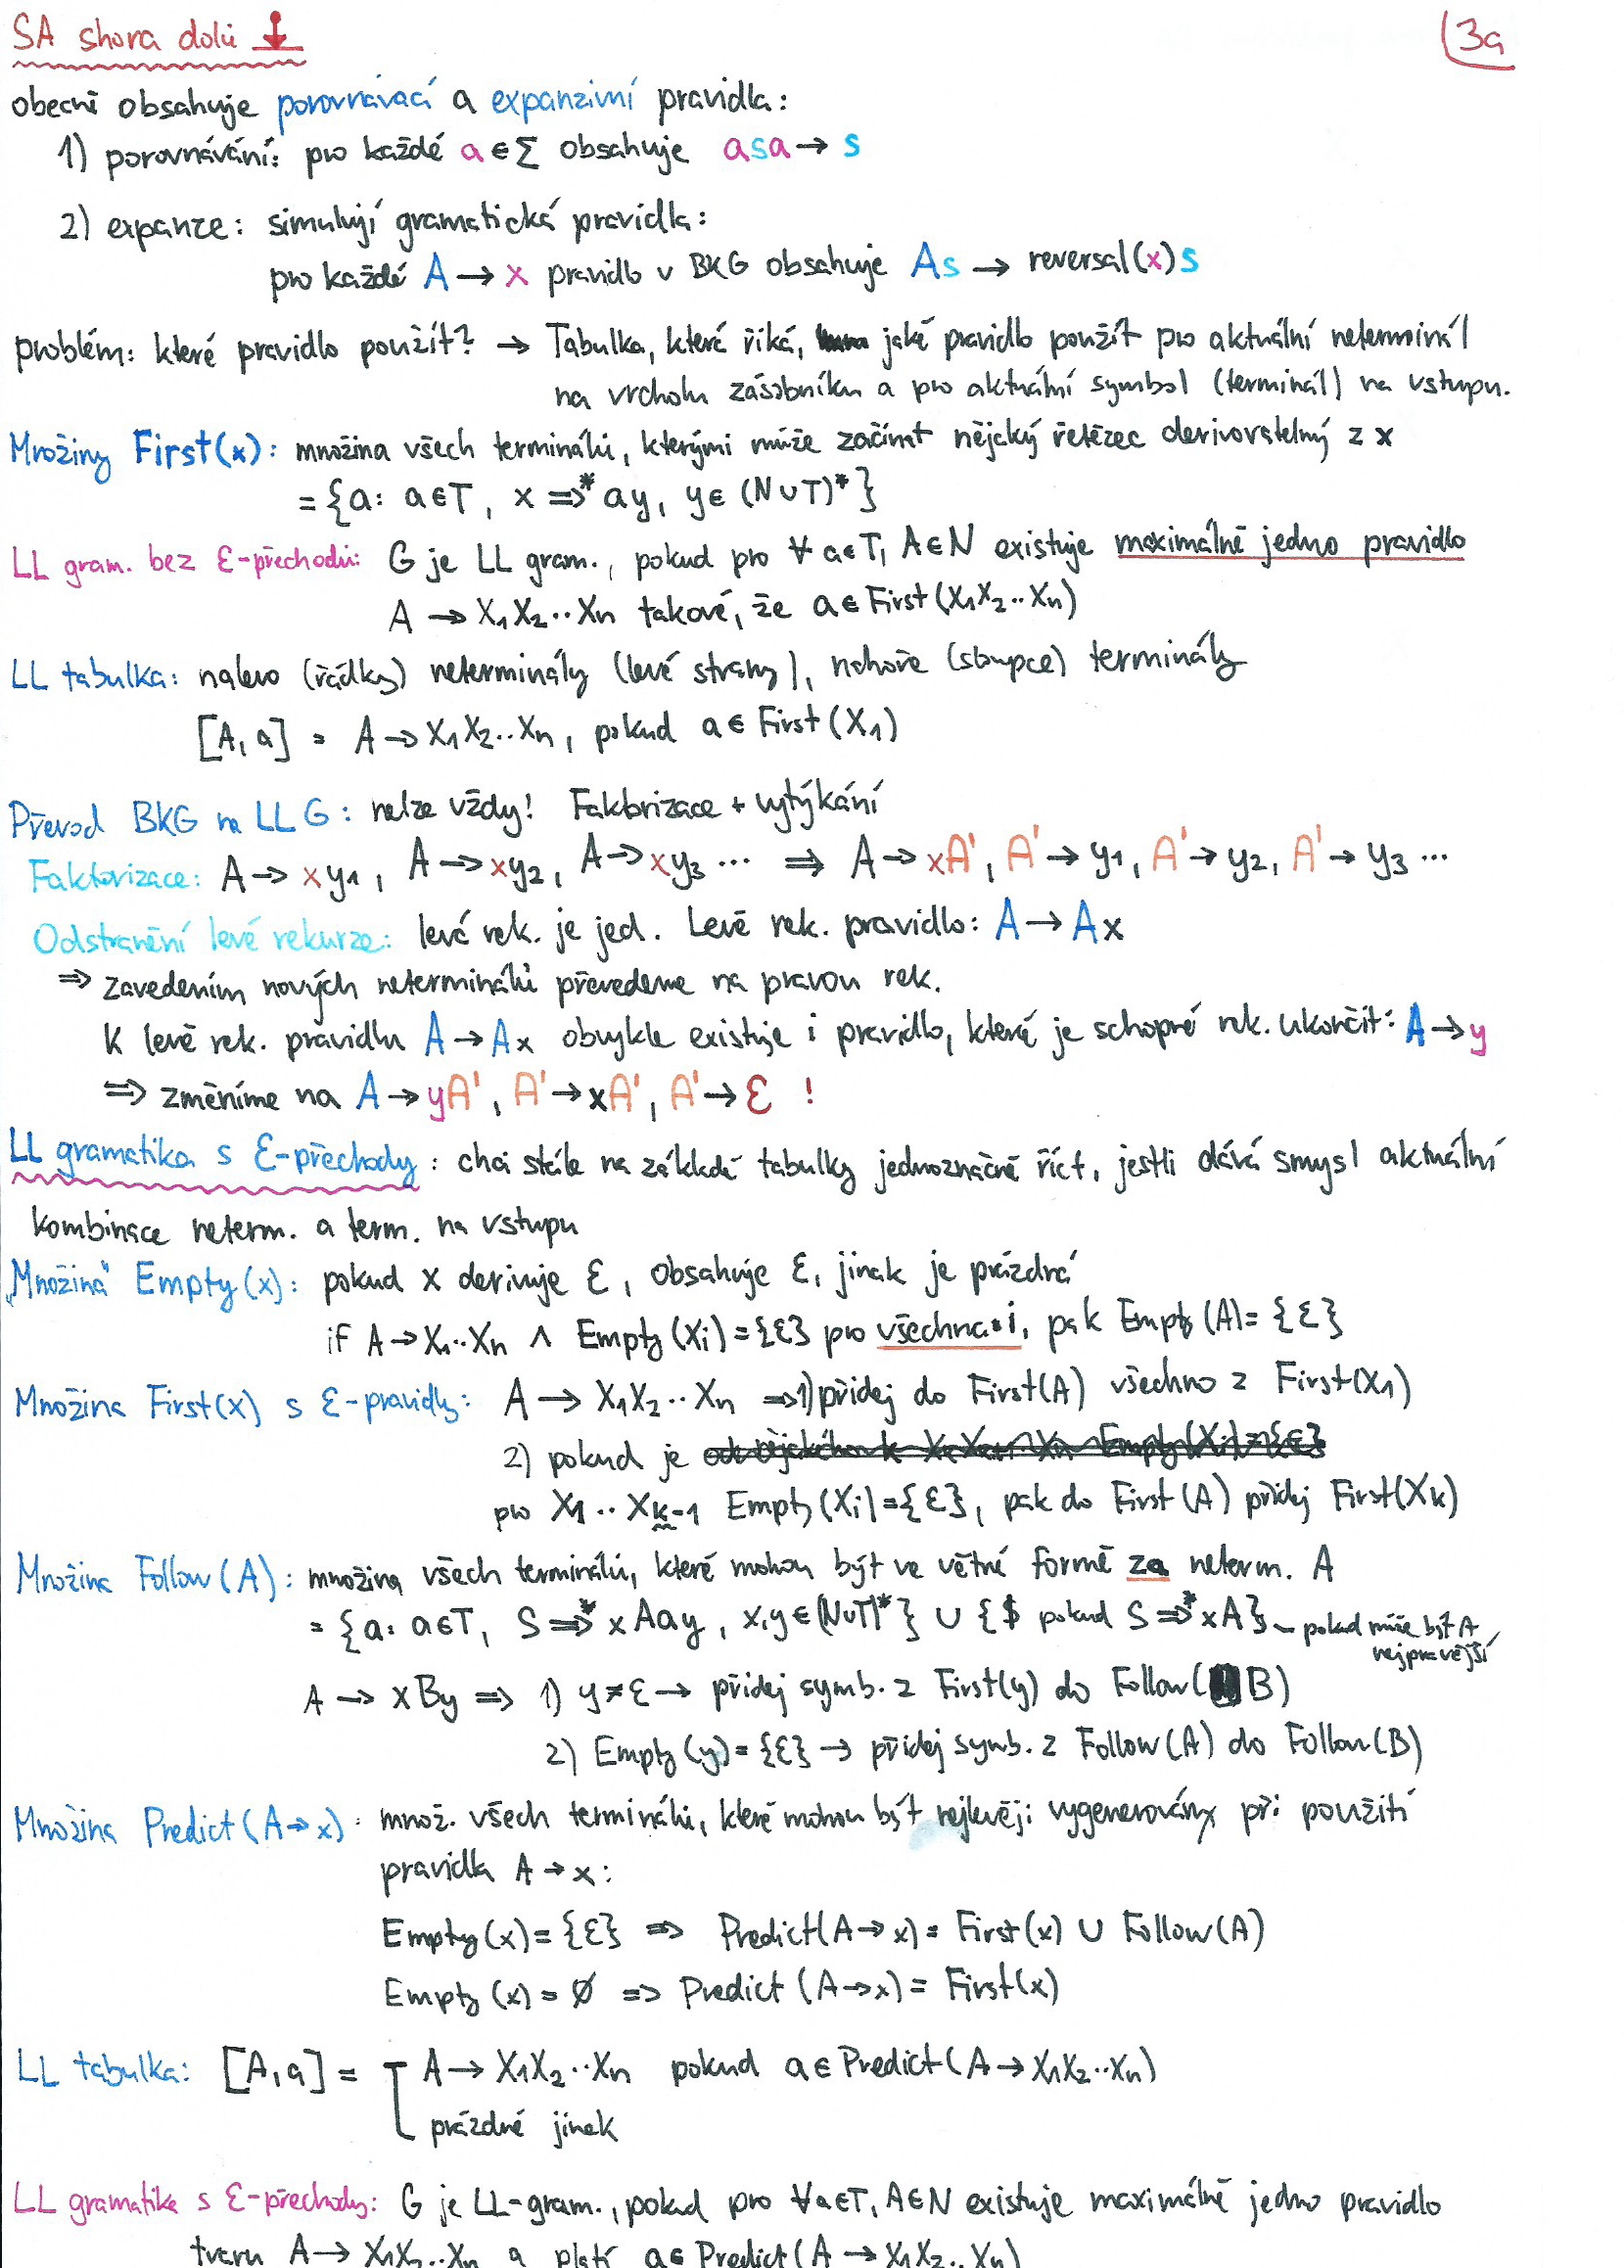 SA shora dolů
3a
obecně obsahuje porovnávací a expanzivní pravidla:
1) porovnávání: pro každé a ∈ Σ obsahuje asa → s
2) expanze: simulují gramatická pravidla:
pro každé A → x pravidlo v BKG obsahuje As → reversal(x)s
problém: které pravidlo použít? → Tabulka, která říká, jaké pravidlo použít pro aktuální neterminál
na vrcholu zásobníku a pro aktuální symbol (terminál) na vstupu.
Množiny First(x): množina všech terminálů, kterými může začínat nějaký řetězec derivovatelný z x
= {a: a∈T, x ⇒* ay, y∈ (N∪T)*}
LL gram. bez ε-přechodů: G je LL gram., pokud pro ∀ a∈T, A∈N existuje maximálně jedno pravidlo
A → X1X2..Xn takové, že a∈First(X1X2..Xn)
LL tabulka: nalevo (řádky) neterminály (levé strany), nahoře (sloupce) terminály
[A, a] = A → X1X2..Xn, pokud a∈ First(X1)
Převod BKG na LL G: nelze vždy! Faktorizace + vytýkání
Faktorizace: A → xy1, A → xy2, A → xy3 ... ⇒ A → xA', A' → y1, A' → y2, A' → y3 ...
Odstranění levé rekurze: levá rek. je jed. Levě rek. pravidlo: A → Ax
⇒ zavedením nových neterminálů převedeme na pravou rek.
K levě rek. pravidlu A → Ax obvykle existuje i pravidlo, které je schopné rek. ukončit: A → y
⇒ změníme na A → yA', A' → xA', A' → ε !
LL gramatika s ε-přechody: chci stále na základě tabulky jednoznačně říct, jestli dává smysl aktuální
kombinace neterm. a term. na vstupu
„Množina" Empty(x): pokud x derivuje ε, obsahuje ε, jinak je prázdná
if A → X1..Xn ∧ Empty(Xi) = {ε} pro všechna i, pak Empty(A) = {ε}
Množina First(x) s ε-pravidly: A → X1X2..Xn ⇒ 1) přidej do First(A) všechno z First(X1)
2) pokud je
pro X1..Xk-1 Empty(Xi) = {ε}, pak do First(A) přidej First(Xk)
Množina Follow(A): množina všech terminálů, které mohou být ve větné formě za neterm. A
= {a: a∈T, S ⇒* xAay, x,y∈(N∪T)*} ∪ {$ pokud S ⇒* xA} ~ pokud může být A
nejpravější
A → xBy ⇒ 1) y≠ε → přidej symb. z First(y) do Follow(B)
2) Empty(y) = {ε} → přidej symb. z Follow(A) do Follow(B)
Množina Predict(A→x): množ. všech terminálů, které mohou být nejlevěji vygenerovány při použití
pravidla A → x:
Empty(x) = {ε} ⇒ Predict(A→x) = First(x) ∪ Follow(A)
Empty(x) = ∅ ⇒ Predict(A→x) = First(x)
LL tabulka: [A, a] = A → X1X2..Xn pokud a∈Predict(A → X1X2..Xn)
prázdné jinak
LL gramatika s ε-přechody: G je LL-gram., pokud pro ∀a∈T, A∈N existuje maximálně jedno pravidlo
tvaru A → X1X2..Xn a platí a∈ Predict(A → X1X2..Xn)